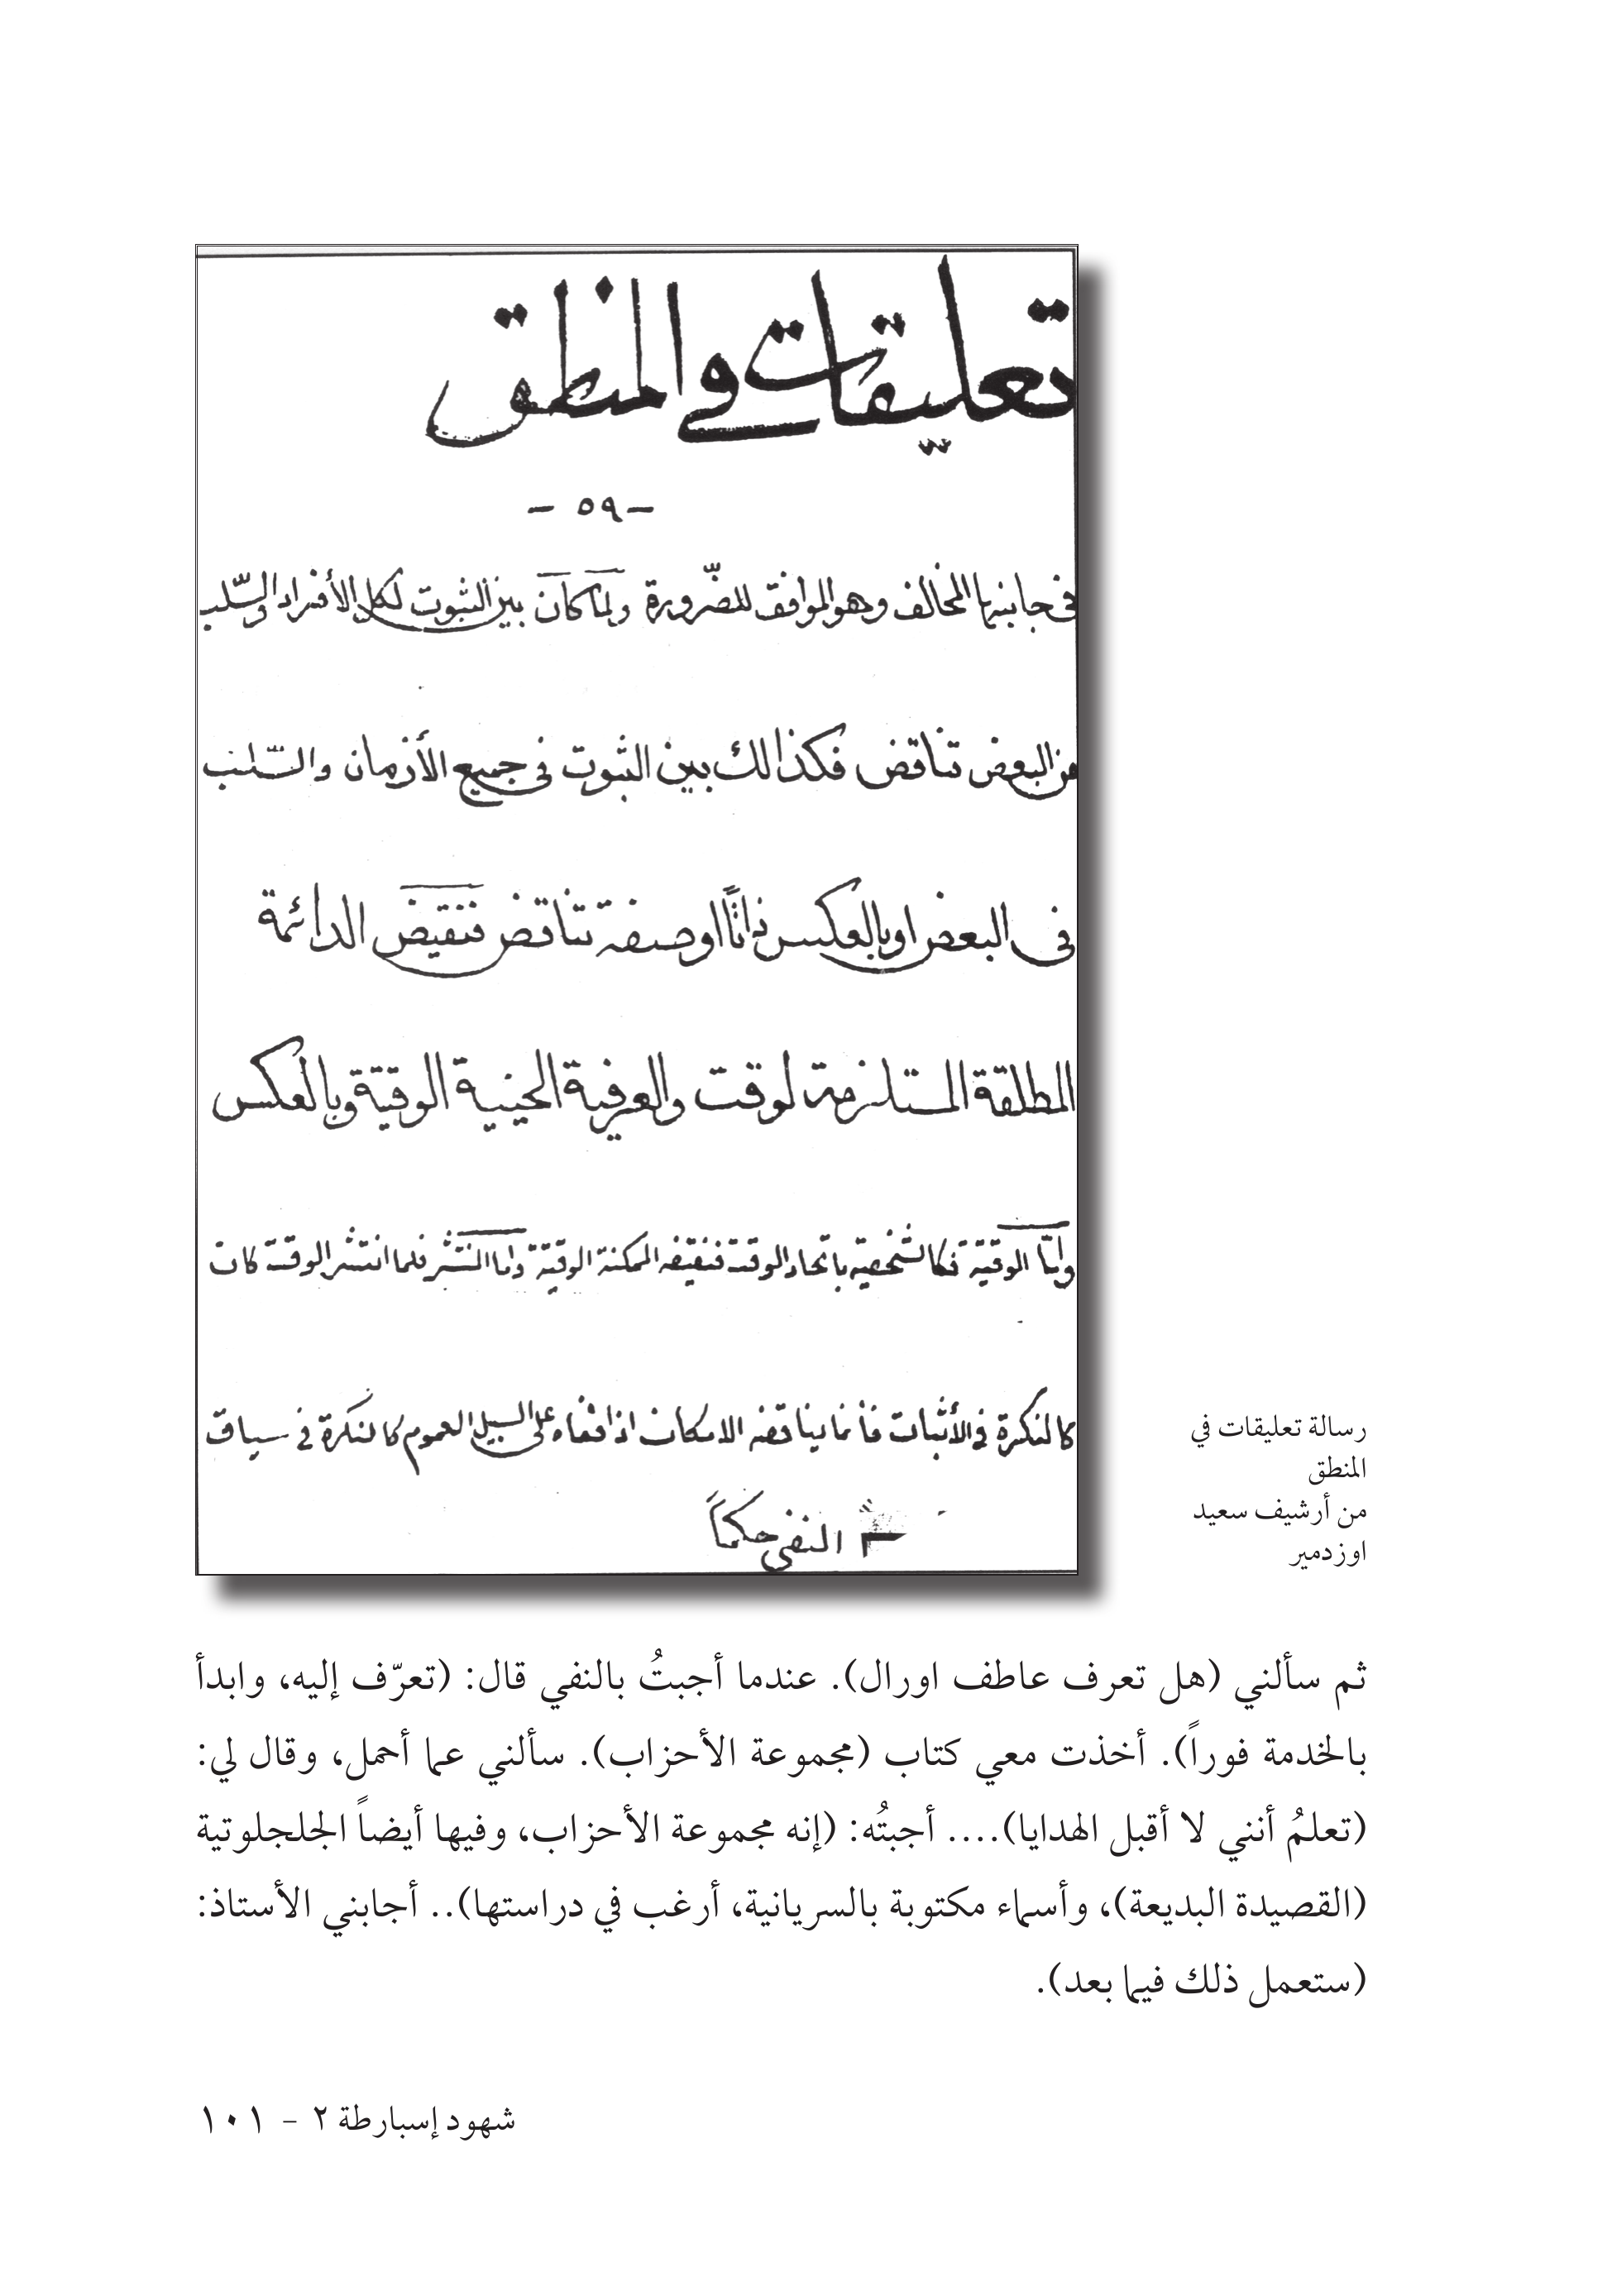 تعليقات في المنطق
- ٥٩ -
في جانبها المخالف وهو الموافق للضّرورة ولما كان بين الثبوت لكل الأفراد والسّلب
عن البعض تناقض فكذالك بين الثبوت في جميع الأزمان والسّلب
في البعض او بالعكس ذاتاً او صفة تناقض فنقيض الدائمة
المطلقة المستلزمة لوقت والعرفية الحينية الوقتية وبالعكس
وامّا الوقتية فكالشخصية باتحاد الوقت فنقيضه الممكنة الوقتية واما المنتشر فلما انتشر الوقت كان
كالنكرة في الأثبات فأنما يناقضه الامكان اذا على السبيل العموم كالنكرة في سياق
النفي حكماً
رسالة تعليقات في
المنطق
من أرشيف سعيد
اوزدمير
ثم سألني (هل تعرف عاطف اورال). عندما أجبتُ بالنفي قال: (تعرّف إليه، وابدأ
بالخدمة فوراً). أخذت معي كتاب (مجموعة الأحزاب). سألني عما أحمل، وقال لي:
(تعلمُ أنني لا أقبل الهدايا).... أجبتُه: (إنه مجموعة الأحزاب، وفيها أيضاً الجلجلوتية
(القصيدة البديعة)، وأسماء مكتوبة بالسريانية، أرغب في دراستها).. أجابني الأستاذ:
(ستعمل ذلك فيما بعد).
شهود إسبارطة ٢ - ١٠١